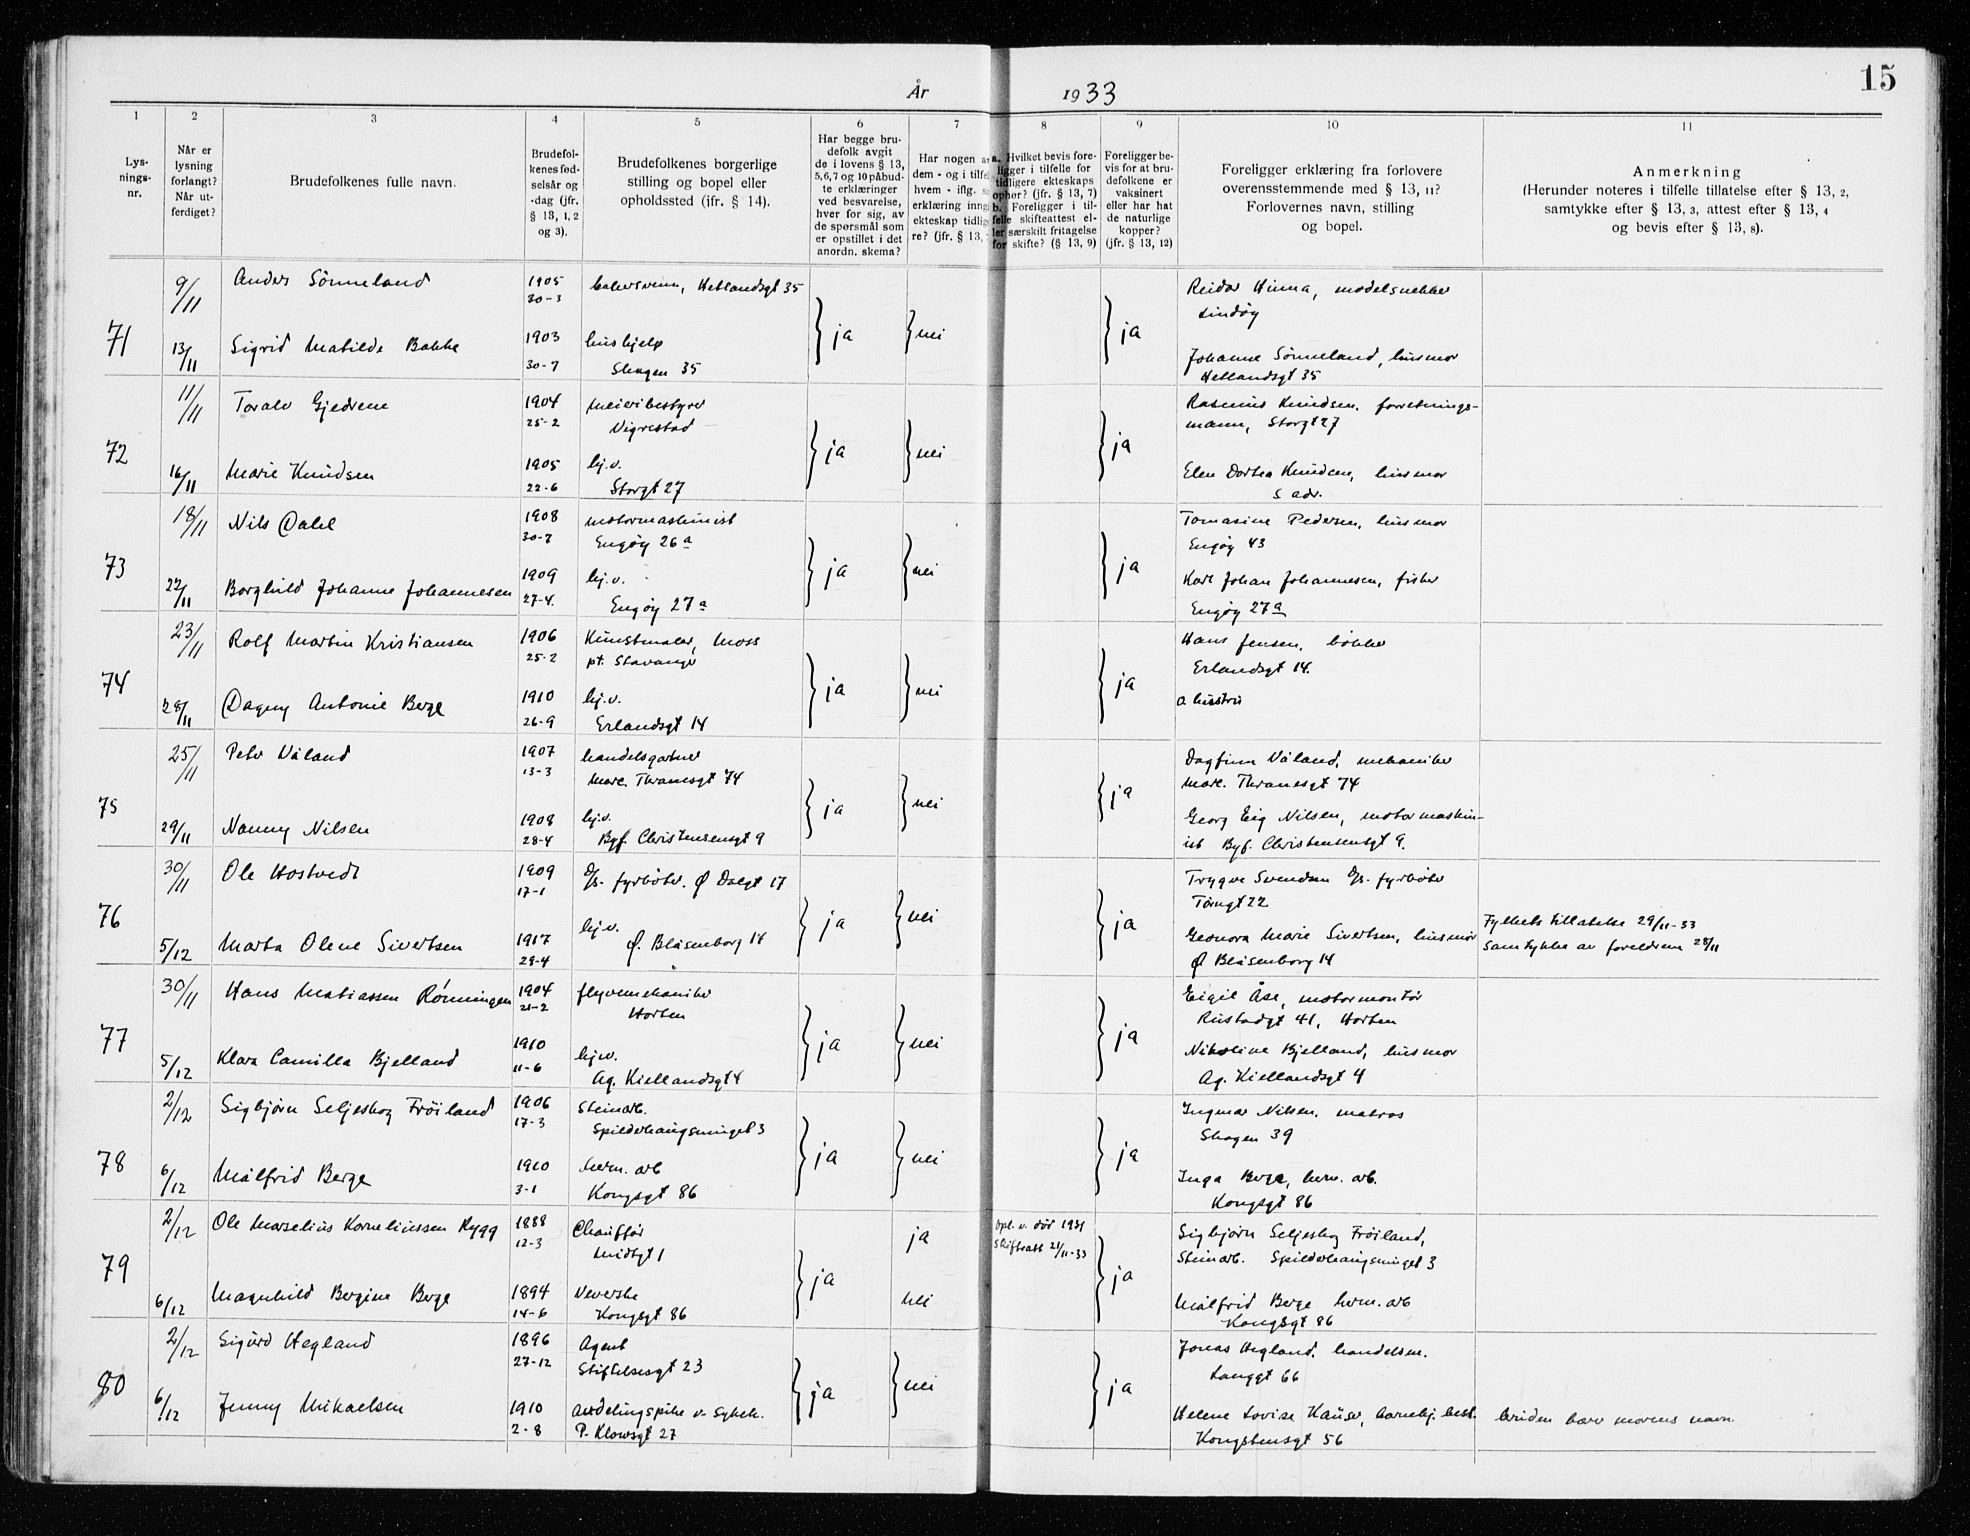 15
År 1933
1 2 3 4 5 6 7 8 9 10 11
Lys-
nings-
nr.
Når er
lysning
forlangt?
Når ut-
ferdiget?
Brudefolkenes fulle navn.
Brudefol-
kenes fød-
selsår og
-dag (jfr.
§ 13, 1, 2
og 3).
Brudefolkenes borgerlige
stilling og bopel eller
opholdssted (jfr. § 14).
Har begge bru-
defolk avgit
de i lovens § 13,
5, 6, 7 og 10 påbud-
te erklæringer
ved besvarelse,
hver for sig, av
de spørsmål som
er opstillet i det
anordn. skema?
Har nogen a
dem - og i tilfel
hvem - iflg.
erklæring inng
ekteskap tidlig
re? (jfr. § 13,
a. Hvilket bevis fore-
ligger i tilfelle for
tidligere ekteskaps
ophør? (jfr. § 13, 7)
b. Foreligger i til-
felle skifteattest el-
ler særskilt fritagelse
for skifte? (§ 13, 9)
Foreligger be-
vis for at bru-
defolkene er
vaksinert
eller har hat
de naturlige
kopper?
(jfr. § 13, 12)
Foreligger erklæring fra forlovere
overensstemmende med § 13, 11?
Forlovernes navn, stilling
og bopel.
Anmerkning
(Herunder noteres i tilfelle tillatelse efter § 13, 2,
samtykke efter § 13, 3, attest efter § 13, 4
og bevis efter § 13, 8).
71 9/11 Anders Sønneland 1905 30-3 bakersvenn, Hetlandsgt 35 ja nei ja Reidar Hinna, modelsnekker
Lindøy
13/11 Sigrid Matilde Bakke 1903 30-7 hushjelp
Skagen 35
Johanne Sønneland, husmor
Hetlandsgt 35
72 11/11 Toralv Gjedrene 1904 25-2 meieribestyrer
Vigrestad ja nei ja Rasmus Knudsen, forretnings-
mann, Storgt 27
16/11 Marie Knudsen 1905 22-6 hj.v.
Storgt 27
Elen Dortea Knudsen, husmor
s adr.
73 18/11 Nils Dahl 1908 30-7 motormaskinist
Engøy 26a ja nei ja Tomasine Pedersen, husmor
Engøy 43
22/11 Borghild Johanne Johannesen 1909 27-4. hj.v.
Engøy 27a
Karl Johan Johannesen, fisker
Engøy 27a
74 23/11 Rolf Martin Kristiansen 1906 25-2 Kunstmaler, Moss
pt. Stavanger ja nei ja Hans Jensen, bøkker
Erlandsgt 14.
28/11 Dagny Antonie Berge 1910 26-9 hj.v.
Erlandsgt 14
a hustru
75 25/11 Peter Våland 1907 13-3 handelsgartner
Marc. Thranesgt 74 ja nei ja Dagfinn Våland, mekaniker
Marc. Thranesgt 74
29/11 Nanny Nilsen 1908 28-4 hj.v.
Byf. Christensensgt 9
Georg Eig Nilsen, motormaskin-
ist Byf. Christensensgt 9.
76 30/11 Ole Hostvedt 1909 17-1 D/s. fyrbøter. Ø Dalgt 17 ja nei ja Trygve Svendsen D/s. fyrbøter
Tårngt 22
5/12 Marta Olene Sivertsen 1917 28-4 hj.v.
Ø. Blåsenborg 14
Geonora Marie Sivertsen, husmor
Ø Blåsenborg 14
Fylkets tillatelse 29/11-33
Samtykke av foreldrene 28/11
77 30/11 Hans Matiassen Rønningen 1904 21-2 flyvemekaniker
Horten ja nei ja Eigil Åse, motormontør
Rustadgt 41, Horten
5/12 Klara Camilla Bjelland 1910 11-6 hj.v.
Ag. Kiellandsgt 4
Nikoline Bjelland, husmor
Ag. Kiellandsgt 4
78 2/12 Sigbjørn Seljeskog Frøiland 1906 17-3 Steinarb.
Spilderhaugsmuget 3 ja nei ja Ingmar Nilsen, matros
Skagen 39
6/12 Målfrid Berge 1910 3-1 herm. arb
Kongsgt 86
Inga Berge, herm. arb.
Kongsgt 86
79 2/12 Ole Marselius Korneliussen Rygg 1888 12-3 Chauffør
Midtgt 1 ja ja opl. v. død 1931
Skifteatt 21/11-33 ja Sigbjørn Seljeskog Frøiland,
Steinarb. Spilderhaugsmuget 3
6/12 Magnhild Bergine Berge 1894 14-6 Veverske
Kongsgt 86 nei
Målfrid Berge herm. arb
Kongsgt 86
80 2/12 Sigurd Hegland 1896 27-12 Agent
Stiftelsesgt 23 ja nei ja Jonas Hegland, handelsm.
Langgt 66
6/12 Jenny Mikaelsen 1910 2-8 avdelingspike v. Sykeh.
P. Klowsgt 27
Helene Lovise Hauser, barnehj. best.
Kongstensgt 56
bruden bær morens navn.